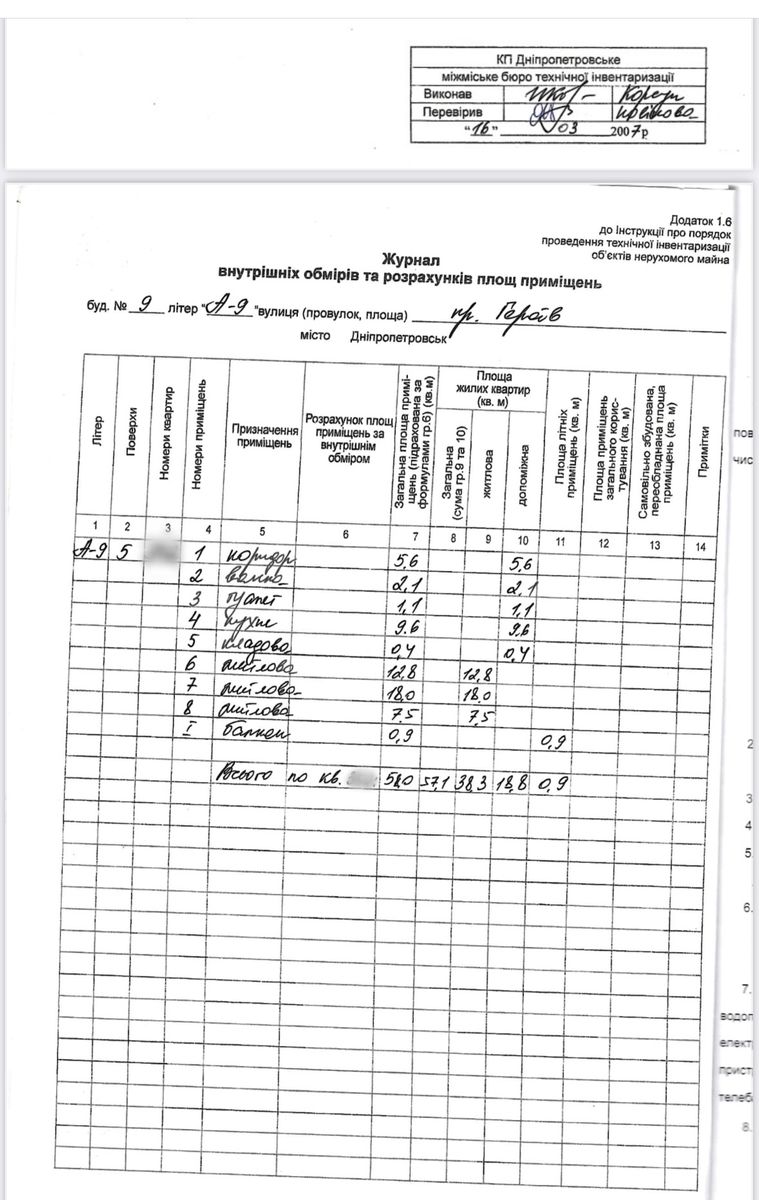 КП Дніпропетровське
міжміське бюро технічної інвентаризації
Виконав
Перевірив
"16" 03 2007р
Додаток 1.6
до Інструкції про порядок
проведення технічної інвентаризації
об'єктів нерухомого майна
Журнал
внутрішніх обмірів та розрахунків площ приміщень
буд. № 9 літер "А-9" вулиця (провулок, площа) пр. Героїв
місто Дніпропетровськ
Літер
Поверхи
Номери квартир
Номери приміщень
Призначення приміщень
Розрахунок площ приміщень за внутрішнім обміром
Загальна площа примі-
щень (підрахована за
формулами гр.6) (кв.м)
Площа
жилих квартир
(кв. м)
Загальна
(сума гр.9 та 10)
житлова
допоміжна
Площа літніх
приміщень (кв. м)
Площа приміщень
загального корис-
тування (кв. м)
Самовільно збудована,
переобладнана площа
приміщень (кв. м)
Примітки
1 2 3 4 5 6 7 8 9 10 11 12 13 14
А-9 5 1 коридор 5,6 5,6
2 ванна 2,1 2,1
3 туалет 1,1 1,1
4 кухня 9.6 9,6
5 кладова 0,4 0,4
6 житлова 12,8 12,8
7 житлова 18,0 18,0
8 житлова 7,5 7,5
I балкон 0,9 0,9
Всього по кв. 58,0 57,1 38,3 18,8 0,9
пов
чис
2
3
4
5
6.
7.
водоп
елект
прист
телеб
8.